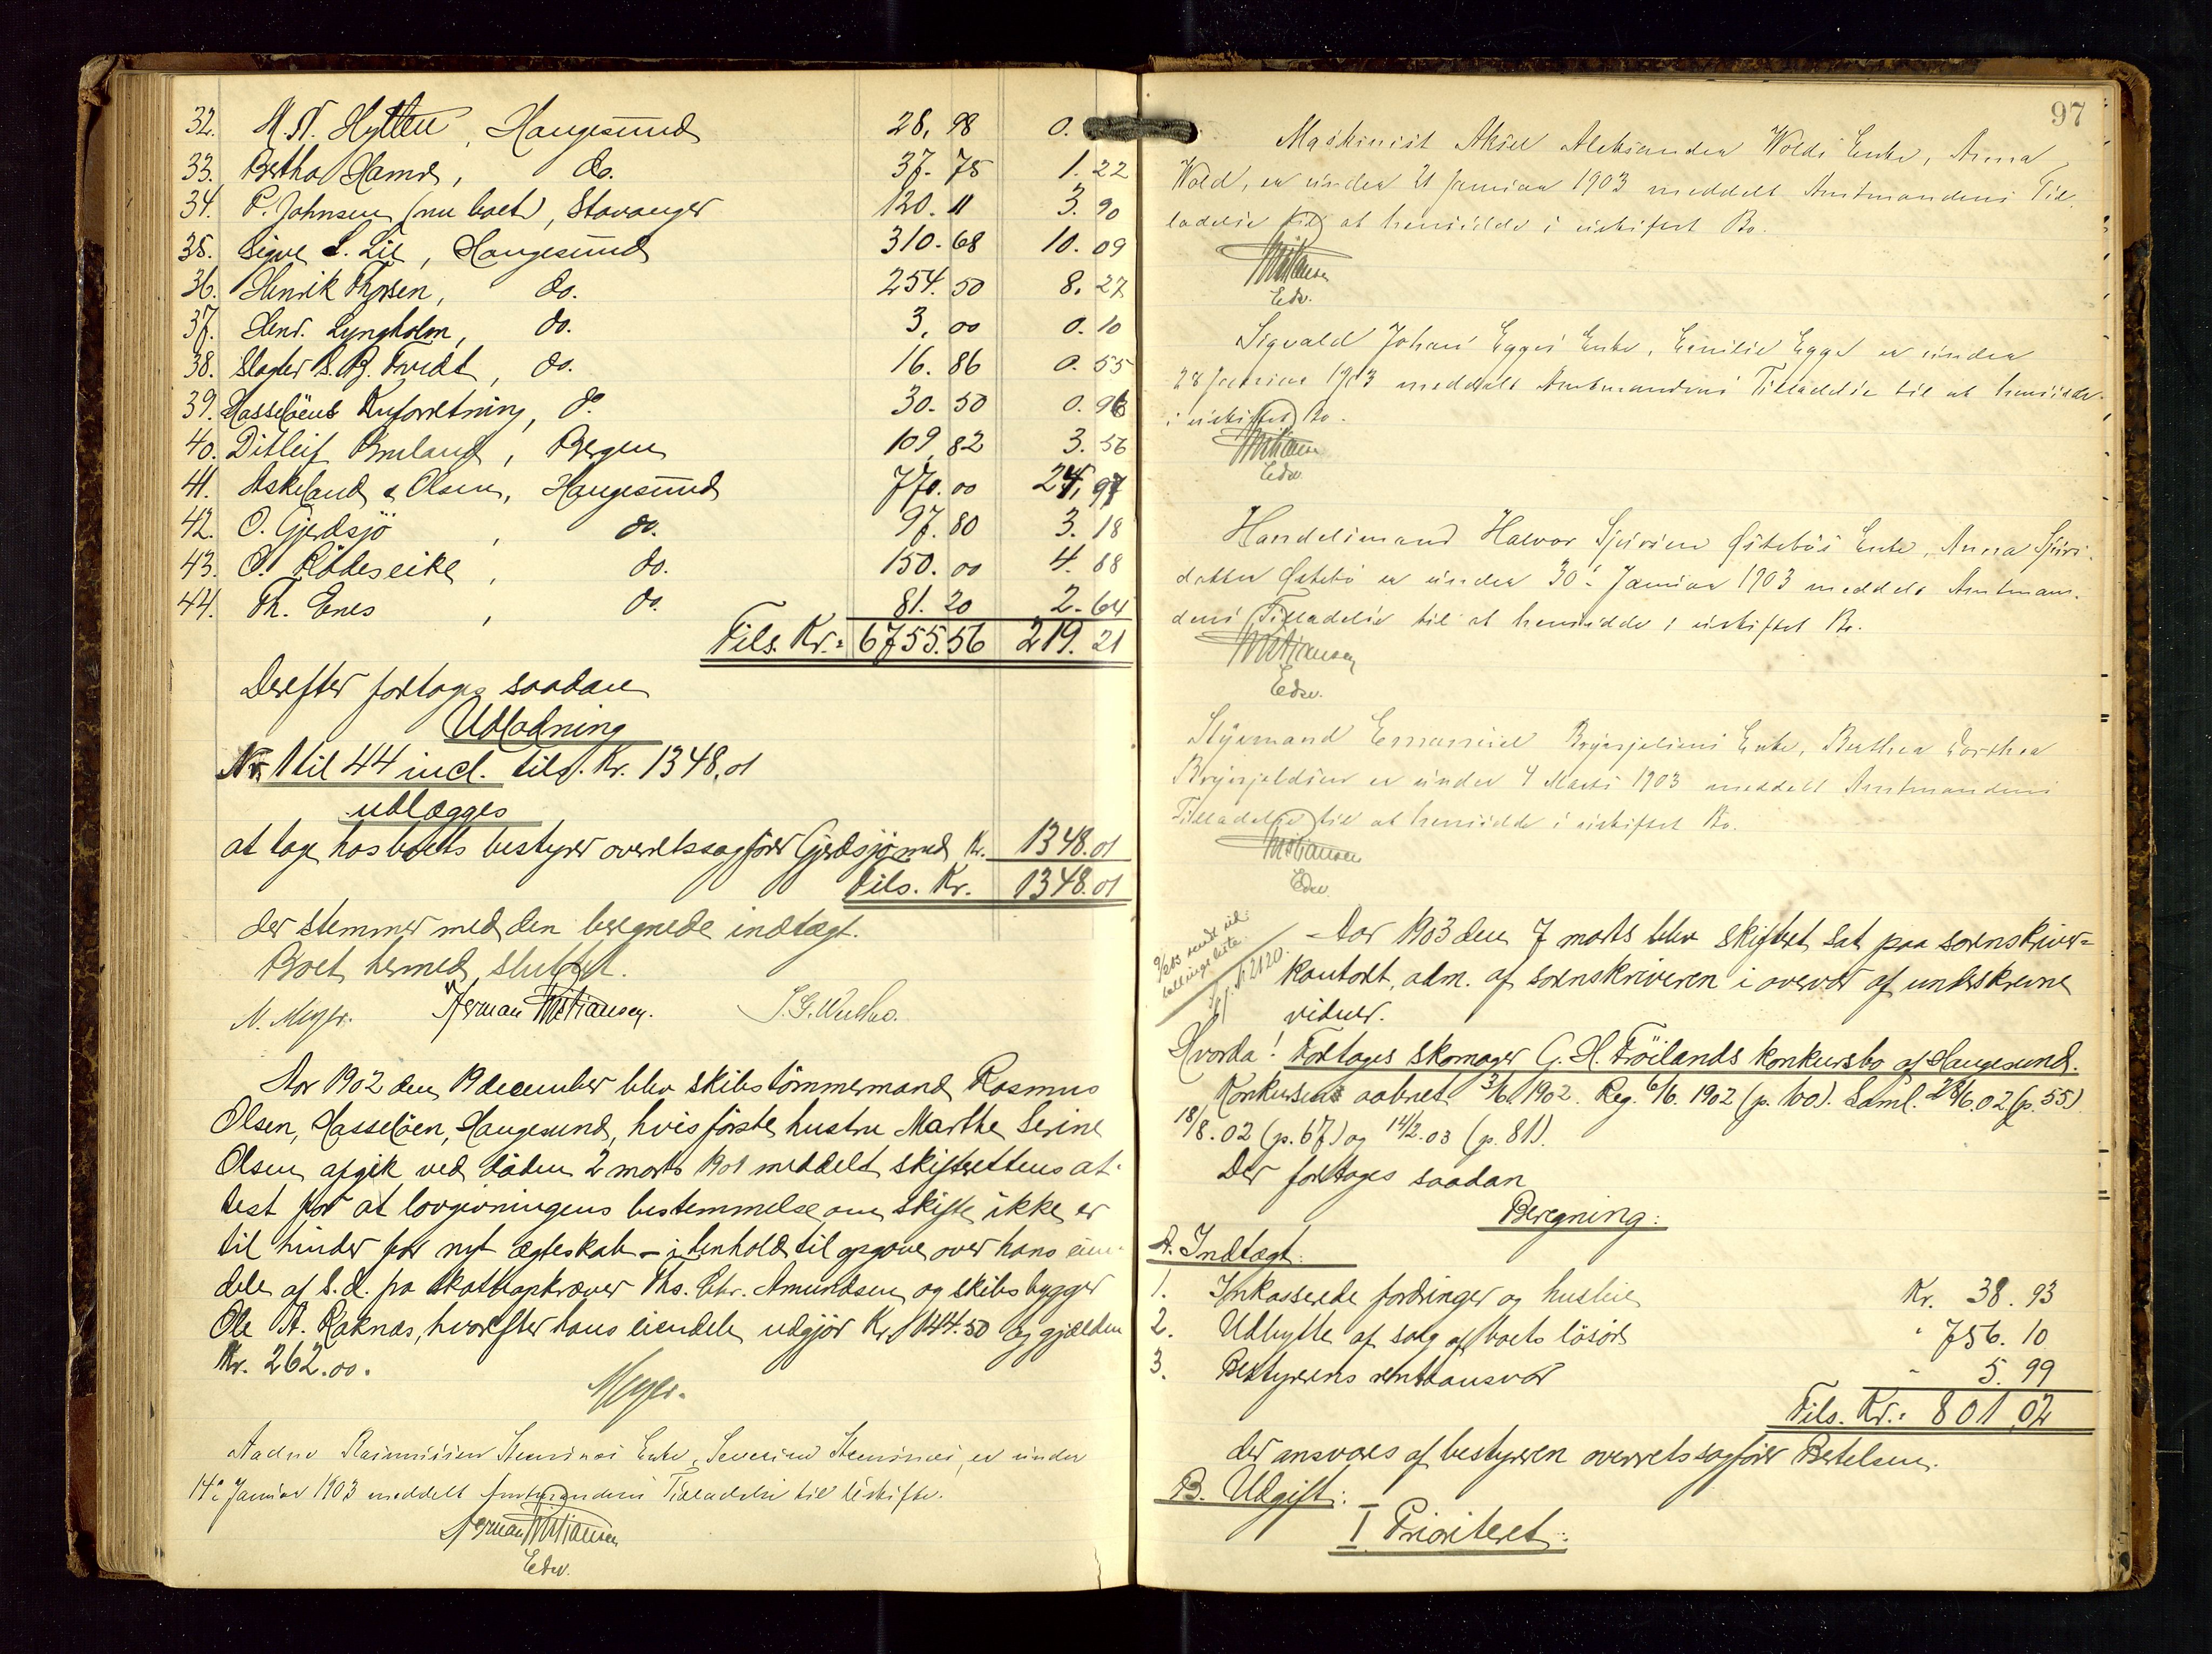 32. M. N. Hytten, Haugesund 28. 98 0.
33. Bertha Hamre, do. 37. 75 1. 22
34. P. Johnsen (nu boet), Stavanger 120. 11 3. 90
35. Sigve L. Lie, Haugesund 310. 68 10. 09
36. Henrik Thorsen, do. 254. 50 8. 27
37. Henr. Lyngholm, do. 3. 00 0. 10
38. Slagter S. B. Tvedt, do. 16. 86 0. 55
39. Hasseløens Kulforretning, do 30. 50 0. 98
40. Ditleif Bruland, Bergen 109. 82 3. 56
41. Askeland & Olsen, Haugesund 770. 00 24. 97
42. O. Gjerdsjö, do. 97. 80 3. 18
43. O. Rödeseike, do. 150. 00 4. 88
44. Th. Enes, do. 81. 20 2. 64
Tils. Kr.: 6755.56 219. 21
Derefter foretages saadan
Udlodning
Nr. 1 til 44 incl. tils. Kr. 1348,01
udlægges
at tage hos boets bestyrer overretssagfører Gjerdsjö med Kr. 1348.01
Tils. Kr. 1348.01
der stemmer med den beregnede indtægt.
Boet hermed sluttet.
N. Meyer. Herman Kristiansen.
Aar 1902 den 19 december blev skibstömmermand Rasmus
Olsen, Hasselöen, Haugesund, hvis förste hustru Marthe Serine
Olsen afgik ved döden 2 marts 1901 meddelt skifterettens at-
test for at lovgivningens bestemmelse om skifte ikke er
til hinder for nyt ægteskab – i henhold til opgave over hans eien-
dele af s. d. fra skatteopkræver Ths. Chr. Amundsen og skibsbygger
Ole A. Raknæs, hvorefter hans eiendele udgjör Kr. 1144.50 og gjælden
Kr. 262.00.
Meyer.
Aadne Rasmussen Stensnæs Enke, Severine Stensnæs, er under
14de Januar 1903 meddelt Amtmandens Tilladelse til Uskifte.
Herman Kristiansen
Edsv.
97
Maskinist Aksel Aleksander Wolds Enke, Anna
Wold, er under 21 Januar 1903 meddelt Amtmandens Til-
ladelse til at hensidde i uskiftet Bo.
Kristiansen
Edsv.
Sigvald Johan Egges Enke, Emilie Egge er under
28 Januar 1903 meddelt Amtmandens Tilladelse til at hensidde
i uskiftet Bo.
Kristiansen
Edsv.
Handelsmand Halvor Sjursen Østebøs Enke, Anna Sjurs-
datter Østebø er under 30te Januar 1903 meddelt Amtman-
dens Tilladelse til at hensidde i uskiftet Bo.
Kristiansen
Edsv.
Styrmand Emanuel Brynjelsens Enke, Berthea Dorthea
Brynjeldsen er under 4 Marts 1903 meddelt Amtmandens
Tilladelse til at hensidde i uskiftet Bo.
Kristiansen
Edsv.
Aar 1903 den 7 marts blev skifteret sat paa sorenskriver-
kontoret, adm. af sorenskriveren i overvær af underskrevne
vidner.
Hvorda! Foretages skomager G. H. Tröilands konkursbo af Haugesund.
Konkursen aabnet 3/6 1902. Reg. 6/6. 1902 (p. 100). Saml. 28/6.02 (p. 55)
18/8.02 (p. 67) og 14/2.03 (p. 81).
Der foretages saadan
Beregning:
A. Indtægt:
1. Inkasserede fordringer og husleie Kr. 38. 93
2. Udbytte af salg af boets lösöre " 756. 10
3. Bestyrerens renteansvar " 5. 99
Tils. Kr.: 801,02
der ansvares af bestyreren overretssagförer Bertelsen.
B. Udgift:
I Prioritet: